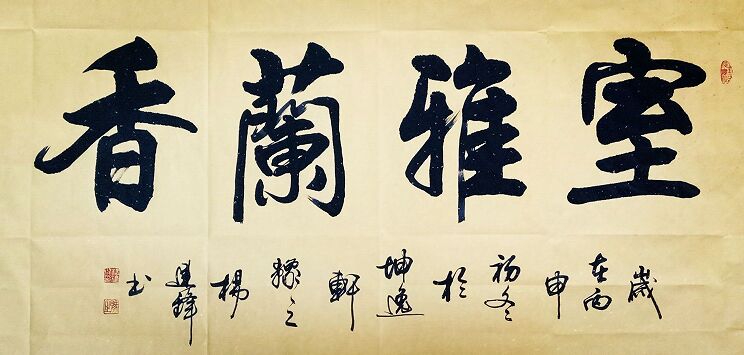 室雅蘭香
歲在丙申初冬於坤逸軒之楊建鋒书